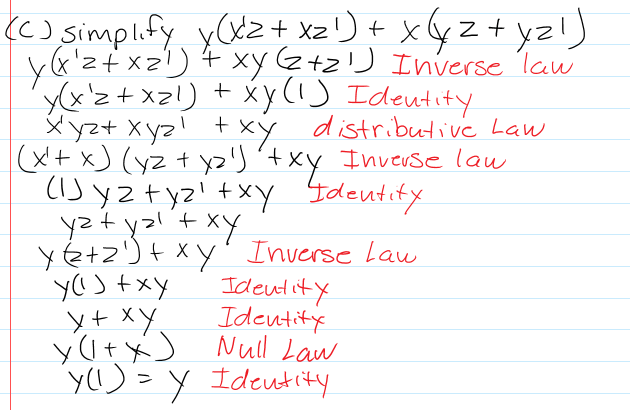 (C) simplify y(x'z + xz') + x(yz + yz')
y(x'z + xz') + xy(z+z') Inverse law
y(x'z + xz') + xy(1) Identity
x'yz + xyz' + xy distributive Law
(x'+x)(yz + yz') + xy Inverse law
(1) yz + yz' + xy Identity
yz + yz' + xy
y(z+z') + xy Inverse Law
y(1) + xy Identity
y + xy Identity
y(1+x) Null Law
y(1) = y Identity